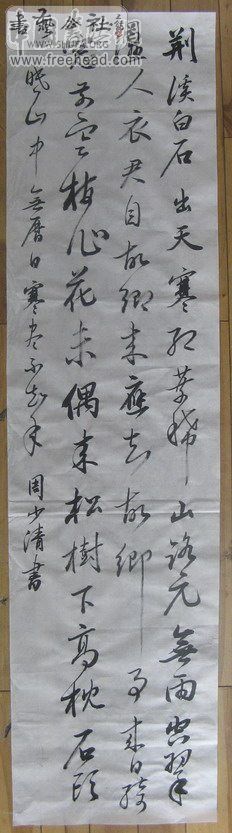 荆溪白石出天寒红葉稀山路元無雨空翠
湿人衣君自故鄉来應知故鄉事来日绮
窗前寒梅著花未偶来松樹下高枕石頭
眠山中無曆日寒尽不知年 周少清書
www.freehead.com